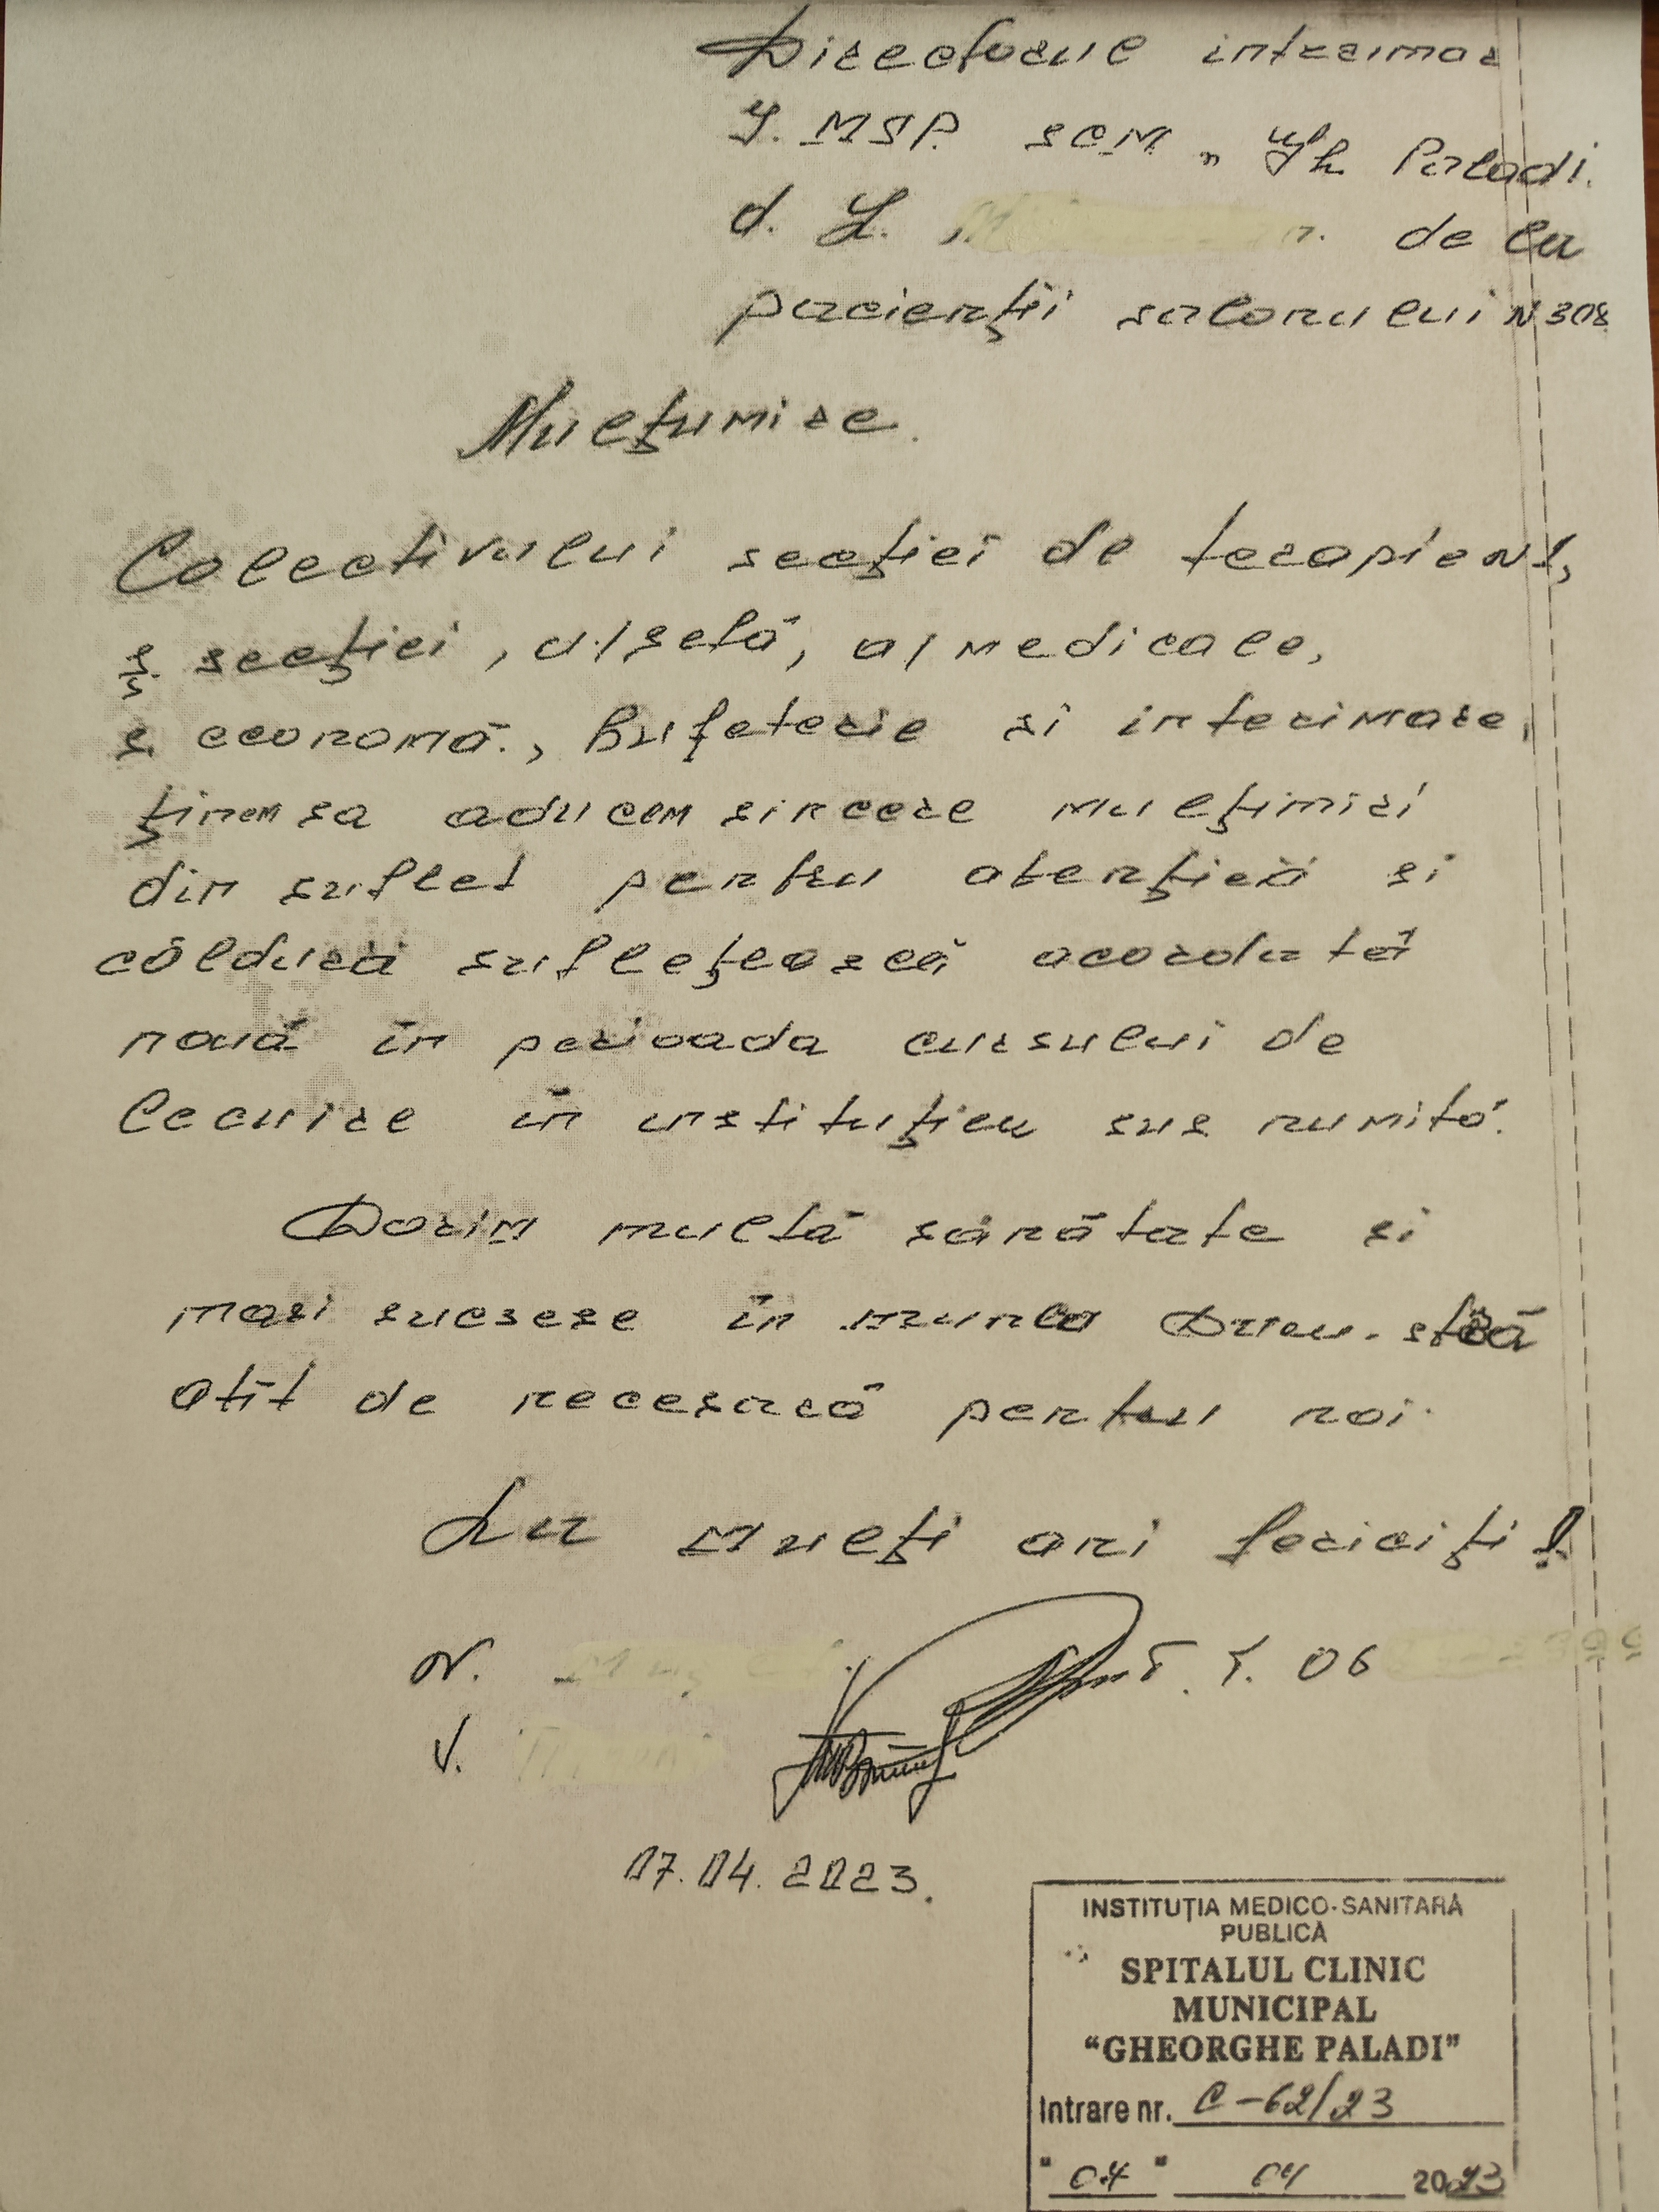 Directorue interimar
I. MSP. SCM „Gh Paladi.
d. L. de la
pacienții salonului N 308
Mulțumire.
Colectivului secției de terapie N1,
ș. secției, a/șefă, a/medicale,
s. economă., Bufeterie si interimare,
ținem sa aducem sincere mulțimiri
din suflet pentru atenția si
căldura suflețească acordată
nouă în perioada cursului de
lecuire în instituției sus numită.
Dorim multă sănătate si
mari sucsese în munca Dvs.
atît de necesară pentru noi.
La mulți ani fericiți!
N. T. 06
V.
07.04.2023.
INSTITUȚIA MEDICO-SANITARĂ
PUBLICĂ
SPITALUL CLINIC
MUNICIPAL
“GHEORGHE PALADI”
Intrare nr. C-62/23
" 04 " 04 2023